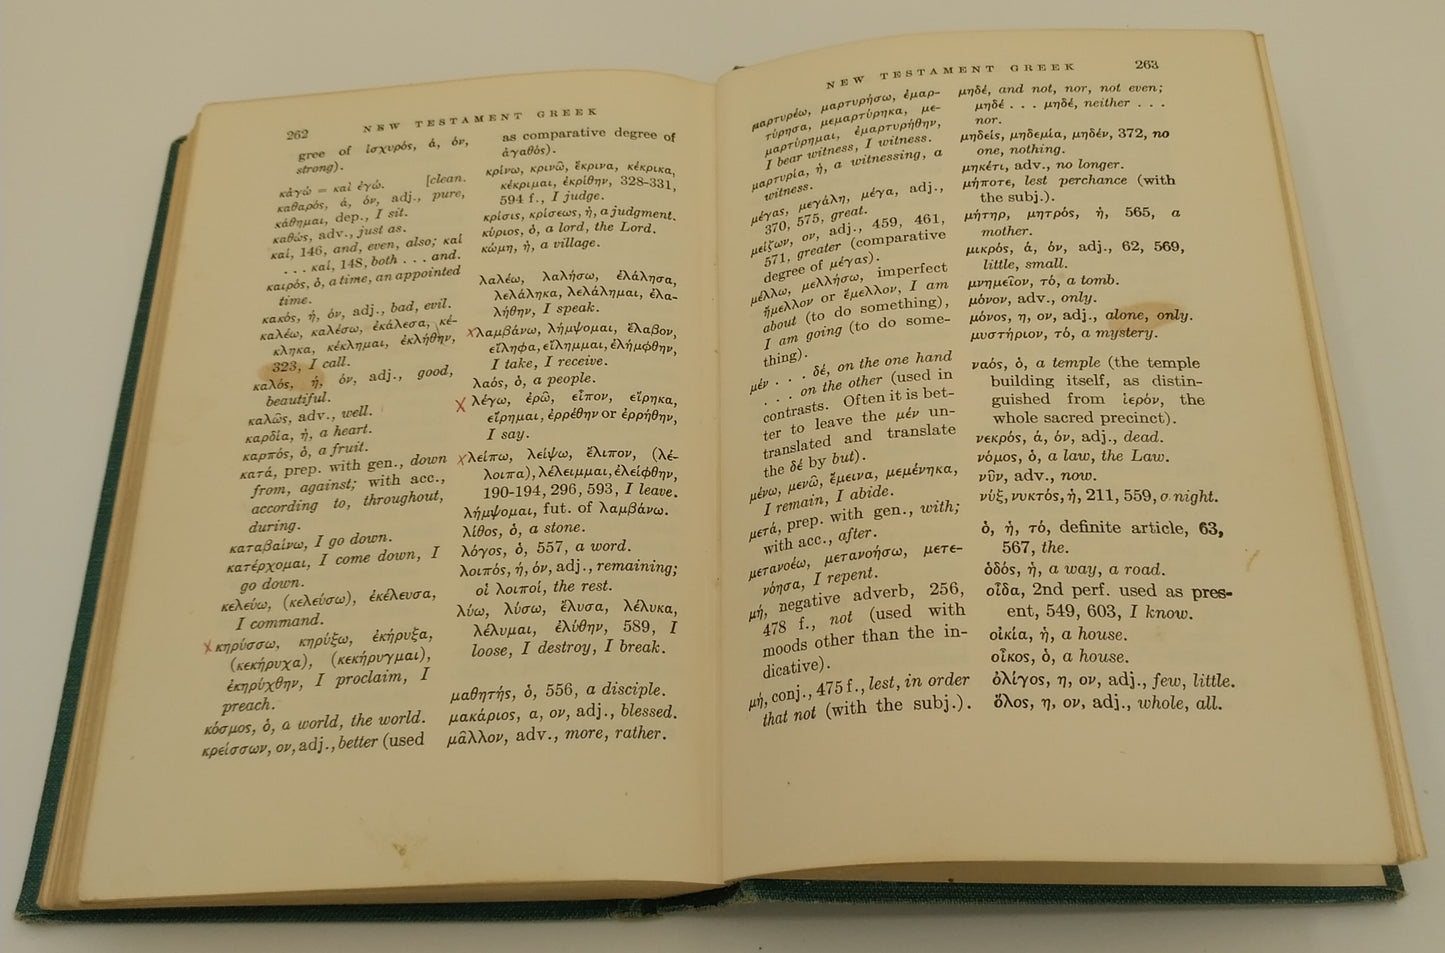 262 NEW TESTAMENT GREEK
gree of ἰσχυρός, ά, όν,
strong).
κἀγώ = καὶ ἐγώ. [clean.
καθαρός, ά, όν, adj., pure,
κάθημαι, dep., I sit.
καθώς, adv., just as.
καί, 146, and, even, also; καί
. . . καί, 148, both . . . and.
καιρός, ὁ, a time, an appointed
time.
κακός, ή, όν, adj., bad, evil.
καλέω, καλέσω, ἐκάλεσα, κέ-
κληκα, κέκλημαι, ἐκλήθην,
323, I call.
καλός, ή, όν, adj., good,
beautiful.
καλῶς, adv., well.
καρδία, ἡ, a heart.
καρπός, ὁ, a fruit.
κατά, prep. with gen., down
from, against; with acc.,
according to, throughout,
during.
καταβαίνω, I go down.
κατέρχομαι, I come down, I
go down.
κελεύω, (κελεύσω), ἐκέλευσα,
I command.
x κηρύσσω, κηρύξω, ἐκήρυξα,
(κεκήρυχα), (κεκήρυγμαι),
ἐκηρύχθην, I proclaim, I
preach.
κόσμος, ὁ, a world, the world.
κρείσσων, ον, adj., better (used
as comparative degree of
ἀγαθός).
κρίνω, κρινῶ, ἔκρινα, κέκρικα,
κέκριμαι, ἐκρίθην, 328-331,
594 f., I judge.
κρίσις, κρίσεως, ἡ, a judgment.
κύριος, ὁ, a lord, the Lord.
κώμη, ἡ, a village.
λαλέω, λαλήσω, ἐλάλησα,
λελάληκα, λελάλημαι, ἐλα-
λήθην, I speak.
x λαμβάνω, λήμψομαι, ἔλαβον,
εἴληφα, εἴλημμαι, ἐλήμφθην,
I take, I receive.
λαός, ὁ, a people.
x λέγω, ἐρῶ, εἶπον, εἴρηκα,
εἴρημαι, ἐρρέθην or ἐρρήθην,
I say.
x λείπω, λείψω, ἔλιπον, (λέ-
λοιπα), λέλειμμαι, ἐλείφθην,
190-194, 296, 593, I leave.
λήμψομαι, fut. of λαμβάνω.
λίθος, ὁ, a stone.
λόγος, ὁ, 557, a word.
λοιπός, ή, όν, adj., remaining;
οἱ λοιποί, the rest.
λύω, λύσω, ἔλυσα, λέλυκα,
λέλυμαι, ἐλύθην, 589, I
loose, I destroy, I break.
μαθητής, ὁ, 556, a disciple.
μακάριος, α, ον, adj., blessed.
μᾶλλον, adv., more, rather.
NEW TESTAMENT GREEK 263
μαρτυρέω, μαρτυρήσω, ἐμαρ-
τύρησα, μεμαρτύρηκα, με-
μαρτύρημαι, ἐμαρτυρήθην,
I bear witness, I witness.
μαρτυρία, ἡ, a witnessing, a
witness.
μέγας, μεγάλη, μέγα, adj.,
370, 575, great.
μείζων, ον, adj., 459, 461,
571, greater (comparative
degree of μέγας).
μέλλω, μελλήσω, imperfect
ἤμελλον or ἔμελλον, I am
about (to do something),
I am going (to do some-
thing).
μέν . . . δέ, on the one hand
. . . on the other (used in
contrasts. Often it is bet-
ter to leave the μέν un-
translated and translate
the δέ by but).
μένω, μενῶ, ἔμεινα, μεμένηκα,
I remain, I abide.
μετά, prep. with gen., with;
with acc., after.
μετανοέω, μετανοήσω, μετε-
νόησα, I repent.
μή, negative adverb, 256,
478 f., not (used with
moods other than the in-
dicative).
μή, conj., 475 f., lest, in order
that not (with the subj.).
μηδέ, and not, nor, not even;
μηδέ . . . μηδέ, neither . . .
nor.
μηδείς, μηδεμία, μηδέν, 372, no
one, nothing.
μηκέτι, adv., no longer.
μήποτε, lest perchance (with
the subj.).
μήτηρ, μητρός, ἡ, 565, a
mother.
μικρός, ά, όν, adj., 62, 569,
little, small.
μνημεῖον, τό, a tomb.
μόνον, adv., only.
μόνος, η, ον, adj., alone, only.
μυστήριον, τό, a mystery.
ναός, ὁ, a temple (the temple
building itself, as distin-
guished from ἱερόν, the
whole sacred precinct).
νεκρός, ά, όν, adj., dead.
νόμος, ὁ, a law, the Law.
νῦν, adv., now.
νύξ, νυκτός, ἡ, 211, 559, a night.
ὁ, ἡ, τό, definite article, 63,
567, the.
ὁδός, ἡ, a way, a road.
οἶδα, 2nd perf. used as pres-
ent, 549, 603, I know.
οἰκία, ἡ, a house.
οἶκος, ὁ, a house.
ὀλίγος, η, ον, adj., few, little.
ὅλος, η, ον, adj., whole, all.